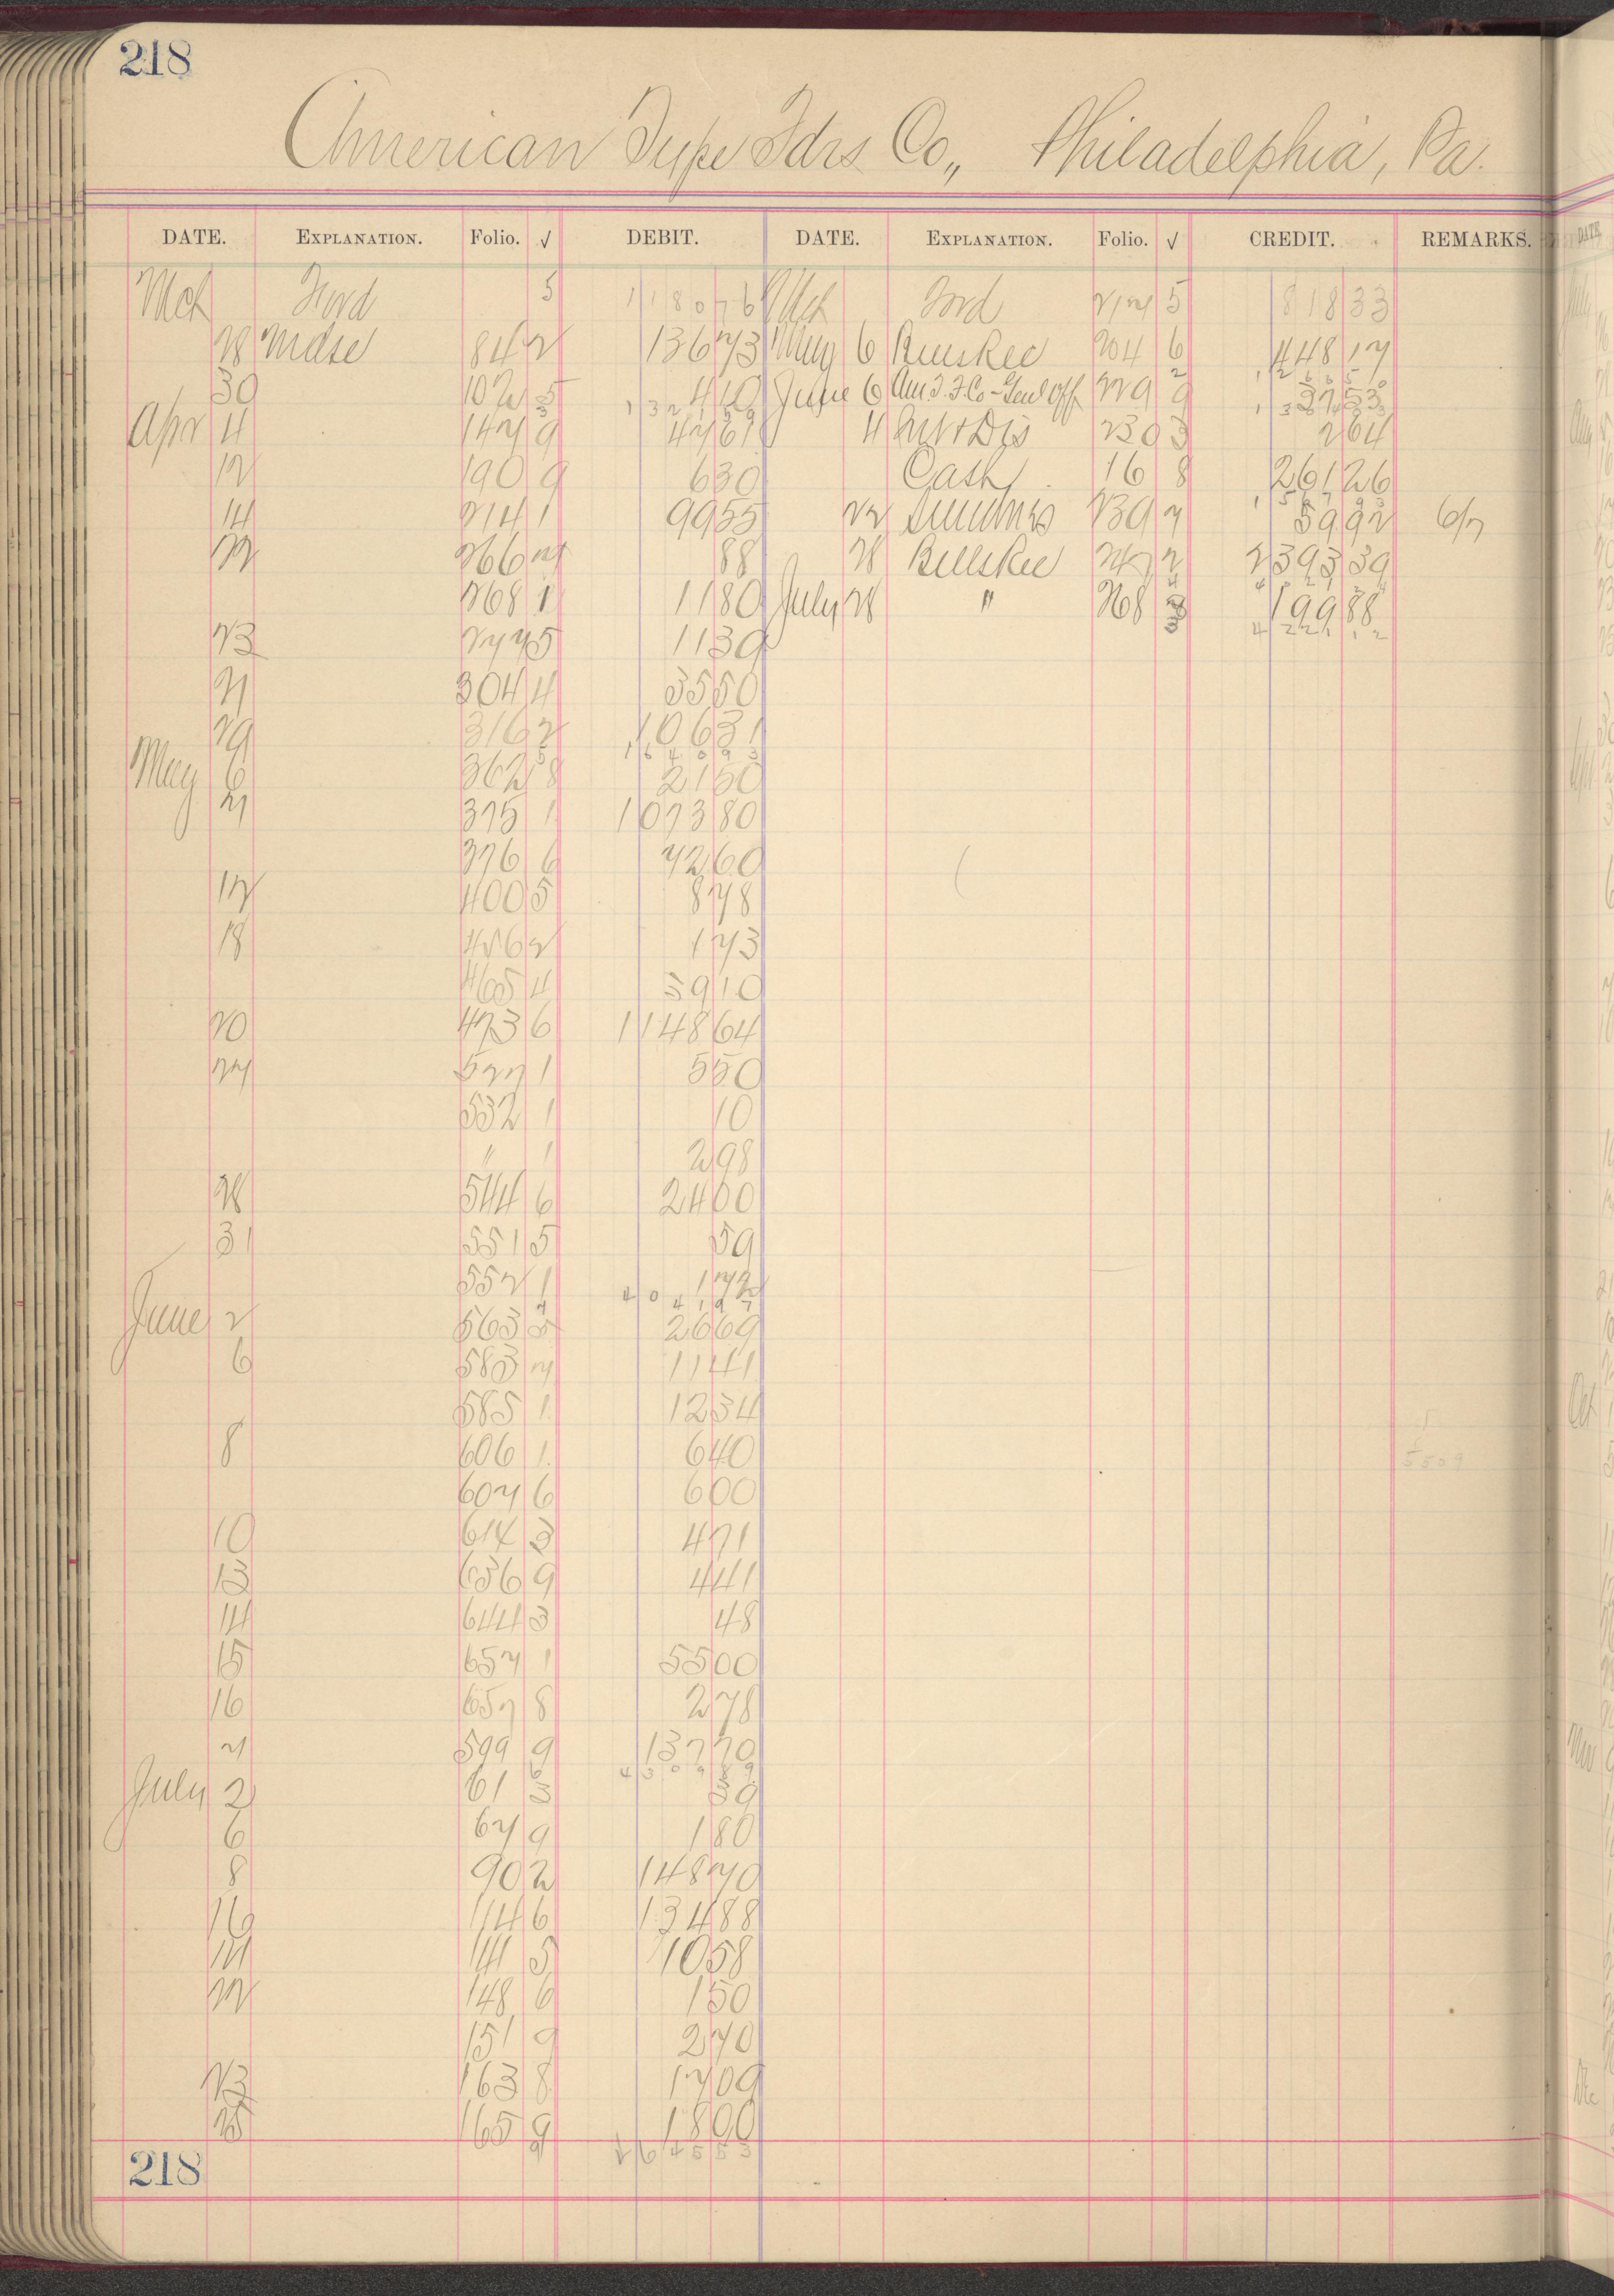 218
American Type Fdrs Co., Philadelphia, Pa.
DATE. EXPLANATION. Folio. √ DEBIT. DATE. EXPLANATION. Folio. √ CREDIT. REMARKS.
Mch Forwd 5 1180 76 Mch Forwd 217 5 818 33
28 Mdse 84 2 136 73 May 6 Billskec 204 6 448 17
30 102 5 4 10 June 6 Am. T. F. Co - Genl Off 229 9 37 53
Apr 4 147 9 47 61 4 Int & Dis 230 3 2 64
12 190 9 6 30 Cash 16 8 261 26
14 214 1 99 55 22 239 7 59 92 6/7
22 266 7 88 28 Billskec 247 2 2393 39
268 1 11 80 July 28 " 268 199 88
23 277 5 11 39
27 304 4 35 50
29 316 2 106 31
1640 93
May 6 362 8 21 50
7 375 1 1073 80
376 6 72 60
12 400 5 8 78
18 456 2 1 73
465 4 39 10
20 473 6 1148 64
24 527 1 5 50
532 1 10
" 1 2 98
28 544 6 24 00
31 551 5 59
552 1 1 72
4041 97
June 2 563 26 69
6 583 7 11 41
585 1 12 34
8 606 1 6 40
607 6 6 00
10 614 3 4 71
13 636 9 4 41
14 644 3 48
15 657 1 55 00
16 657 8 2 78
7 599 9 137 70
4309 89
July 2 61 3 39
6 67 9 1 80
8 90 2 148 70
16 114 6 134 88
141 5 10 58
22 148 6 1 50
151 9 2 70
23 163 8 17 09
25 165 9 18 00
4645 53
218